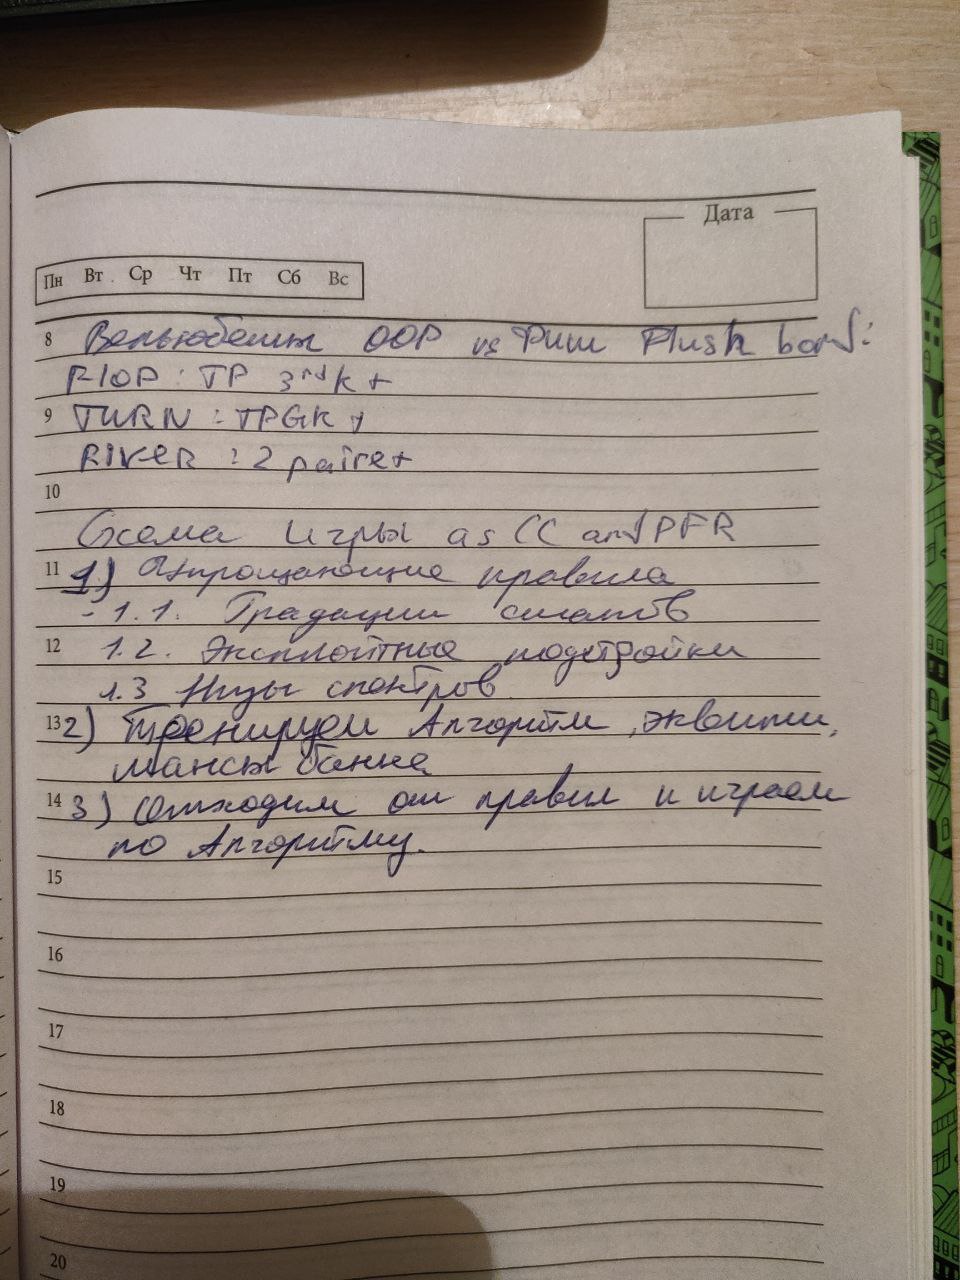 Дата
Пн Вт Ср Чт Пт Сб Вс
8 Вельюбеты OOP vs Фиш Flush bord:
FlOP : TP 3rd k +
9 TURN : TPGK +
RIVER : 2 paire+
10
Схема игры as CC and PFR
11 1) Упрощающие правила
- 1.1. Градации сизлов
12 1.2. Эксплойтные подстройки
1.3 Низы спектров
13 2) Тренируем Алгоритм, эквити,
шансы банка
14 3) Отходим от правил и играем
по Алгоритму.
15
16
17
18
19
20